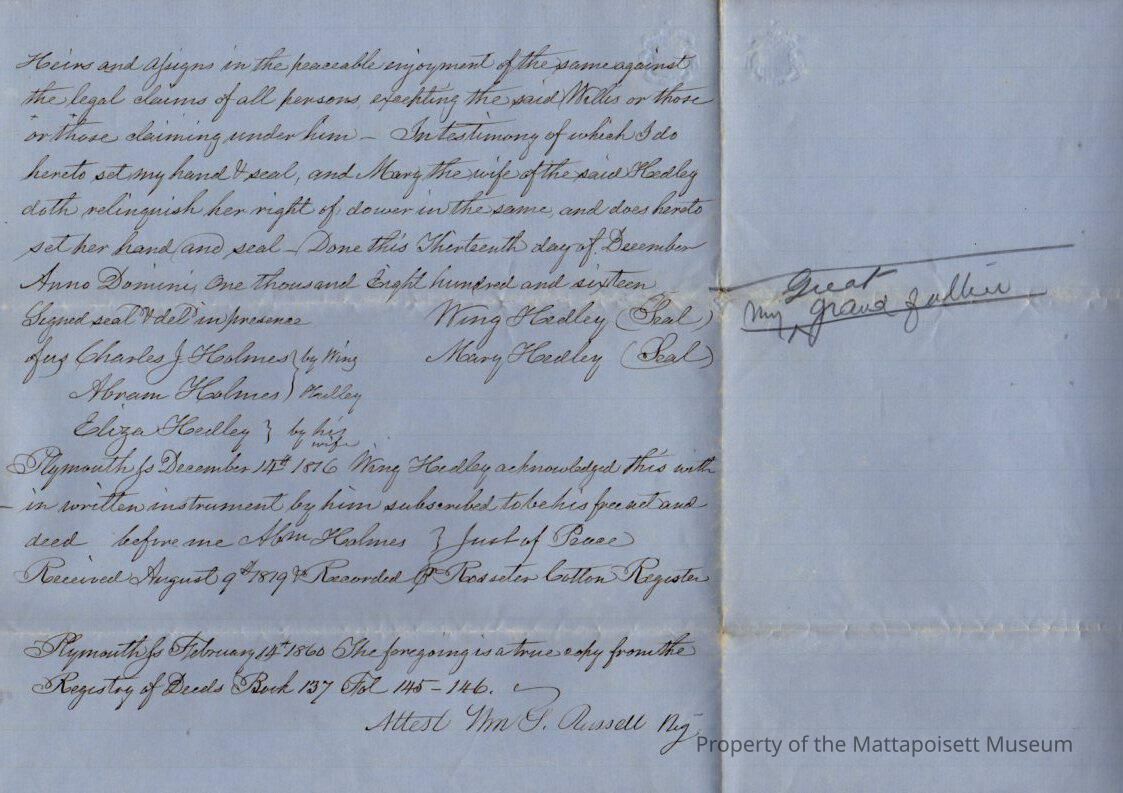 Heirs and assigns in the peaceable enjoyment of the same against
the legal claims of all persons, excepting the said Willis or those
or those claiming under him – In testimony of which I do
hereto set my hand & seal, and Mary the wife of the said Hedley
doth relinquish her right of dower in the same, and does hereto
set her hand and seal – Done this Thirteenth day of December
Anno Domini, One thousand Eight hundred and sixteen
Signed seal & deld in presence Wing Hedley (Seal)
of us Charles J. Holmes } by Wing Mary Hedley (Seal)
Abram Holmes } Hedley
Eliza Hedley } by his wife
Great
My grand father
Plymouth Ss December 14th 1816 Wing Hedley acknowledged this with
– in written instrument by him subscribed to be his free act and
deed before me Abm Holmes } Just of Peace
Received August 9th 1819 & Recorded Pr Rosseter Cotton Register
Plymouth Ss February 14th 1860 The foregoing is a true copy from the
Registry of Deeds Book 137 Fol 145–146.
Attest Wm S. Russell Reg
Property of the Mattapoisett Museum